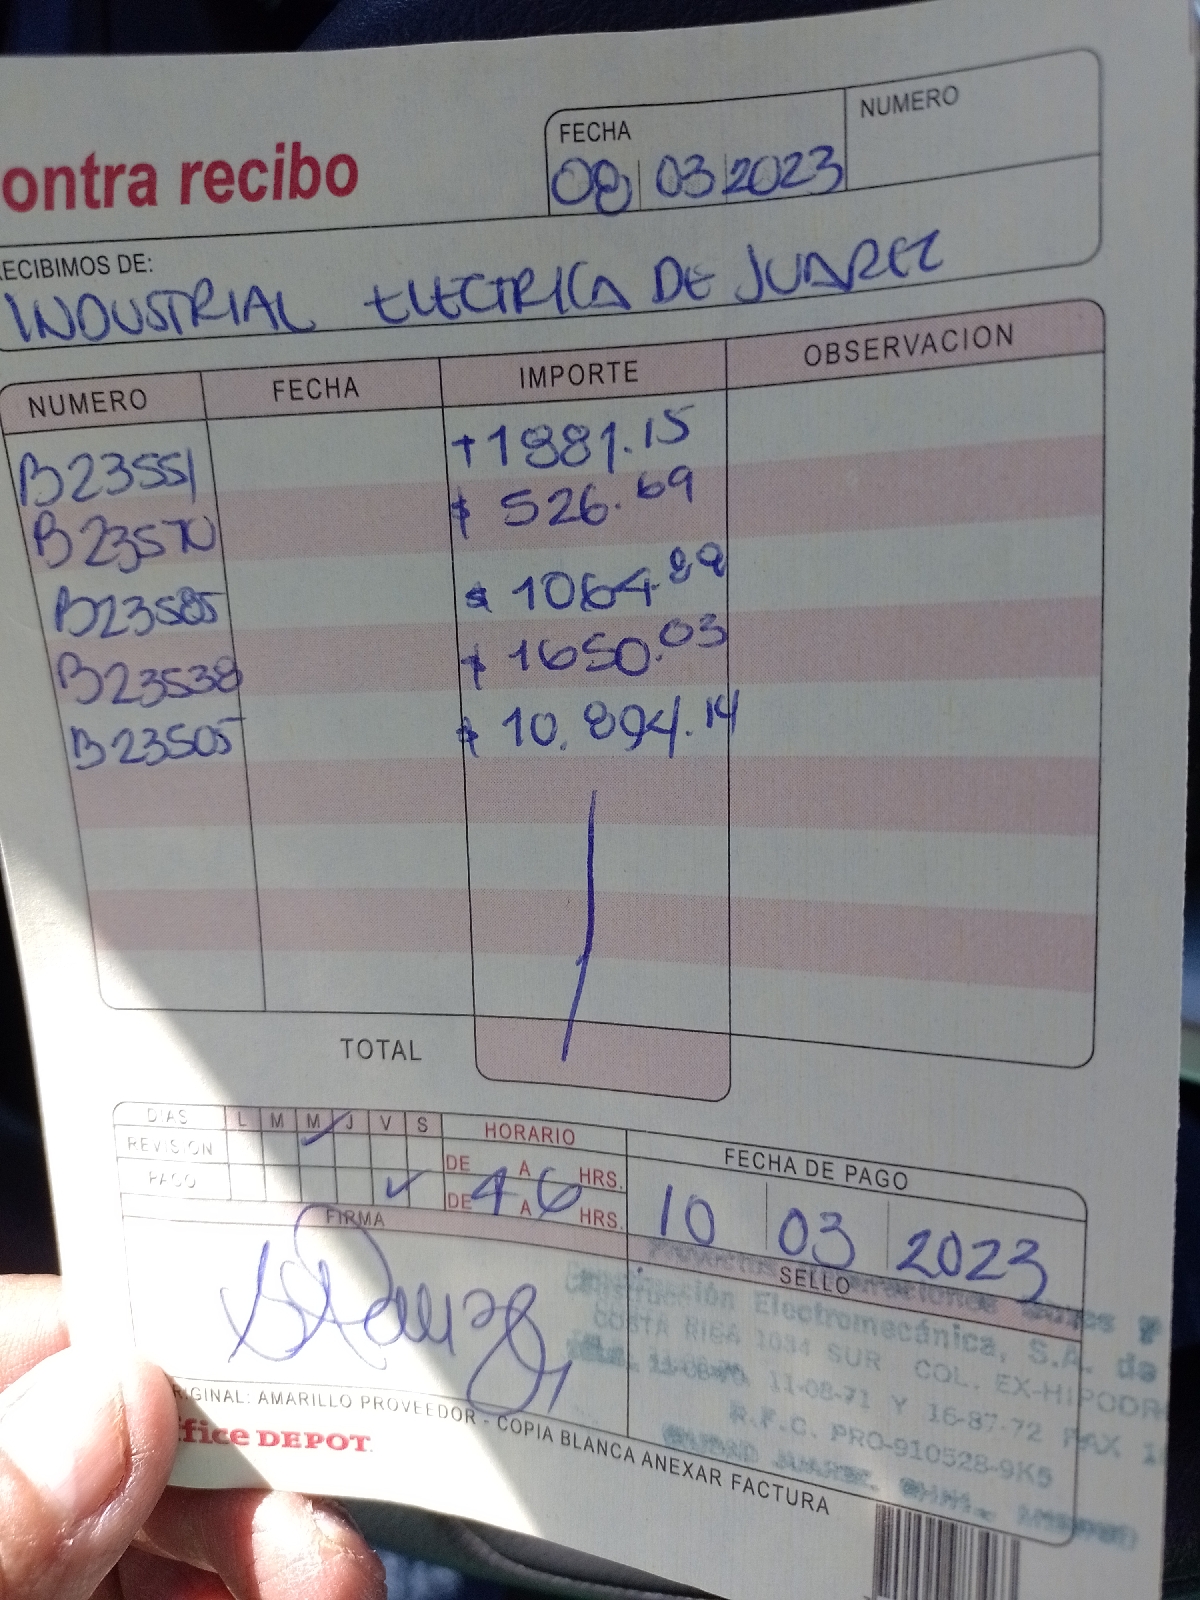 ontra recibo
FECHA
NUMERO
08 03 2023
ECIBIMOS DE:
INDUSTRIAL ELECTRICA DE JUAREZ
NUMERO FECHA IMPORTE OBSERVACION
B23551 $1881.15
B23570 $ 526.69
B23585 $ 1064.89
B23538 $ 1650.03
B23505 $ 10,894.14
TOTAL
DIAS L M M J V S HORARIO
REVISION DE A HRS.
PAGO DE 4 A 6 HRS.
FECHA DE PAGO
10 03 2023
FIRMA
SELLO
Construcción Electromecánica, S.A. de
COSTA RICA 1034 SUR COL. EX-HIPODR
11-08-71 Y 16-87-72 FAX 1
R.F.C. PRO-910528-9K5
CIUDAD JUAREZ, CHIH.
RIGINAL: AMARILLO PROVEEDOR - COPIA BLANCA ANEXAR FACTURA
ffice DEPOT